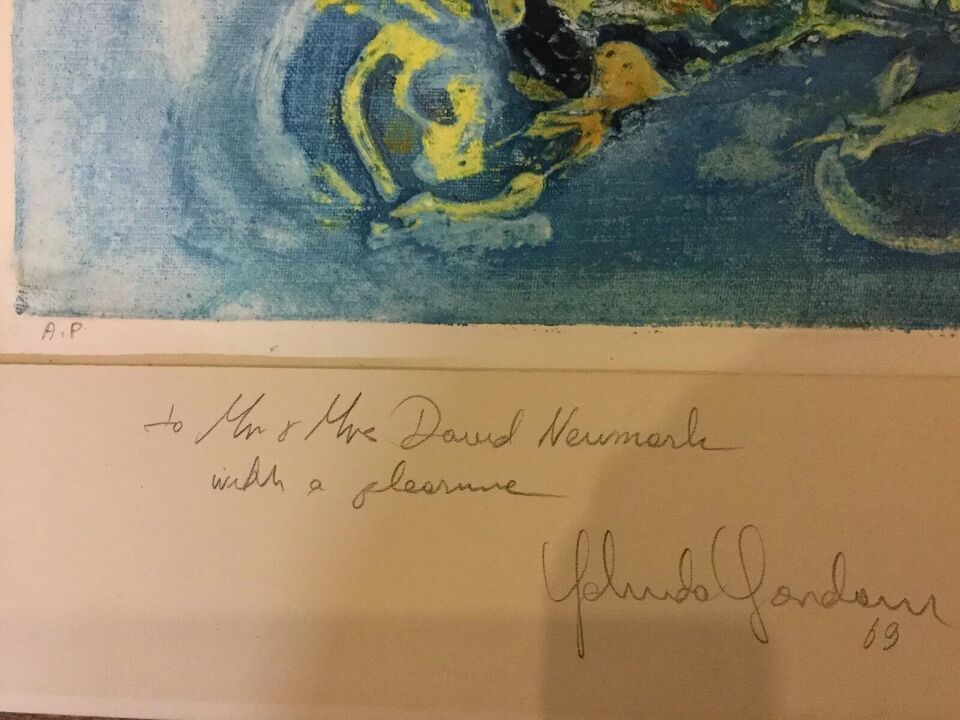 A.P
to Mr & Mrs David Newmark
with a pleasure
Yehuda
69